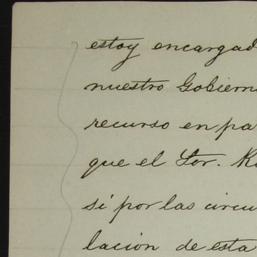 estoy encargad
nuestro Gobiern
recurso en pa
que el Sor. K
si por las circu
lacion de esta